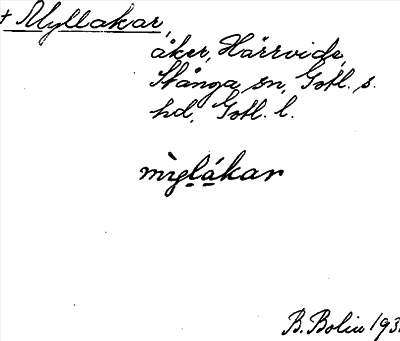 + Myllakar,
åker, Härrvide,
Stånga sn, Gotl. s.
hd, Gotl. l.
mìg̣lạ́kar
B. Bolin 193